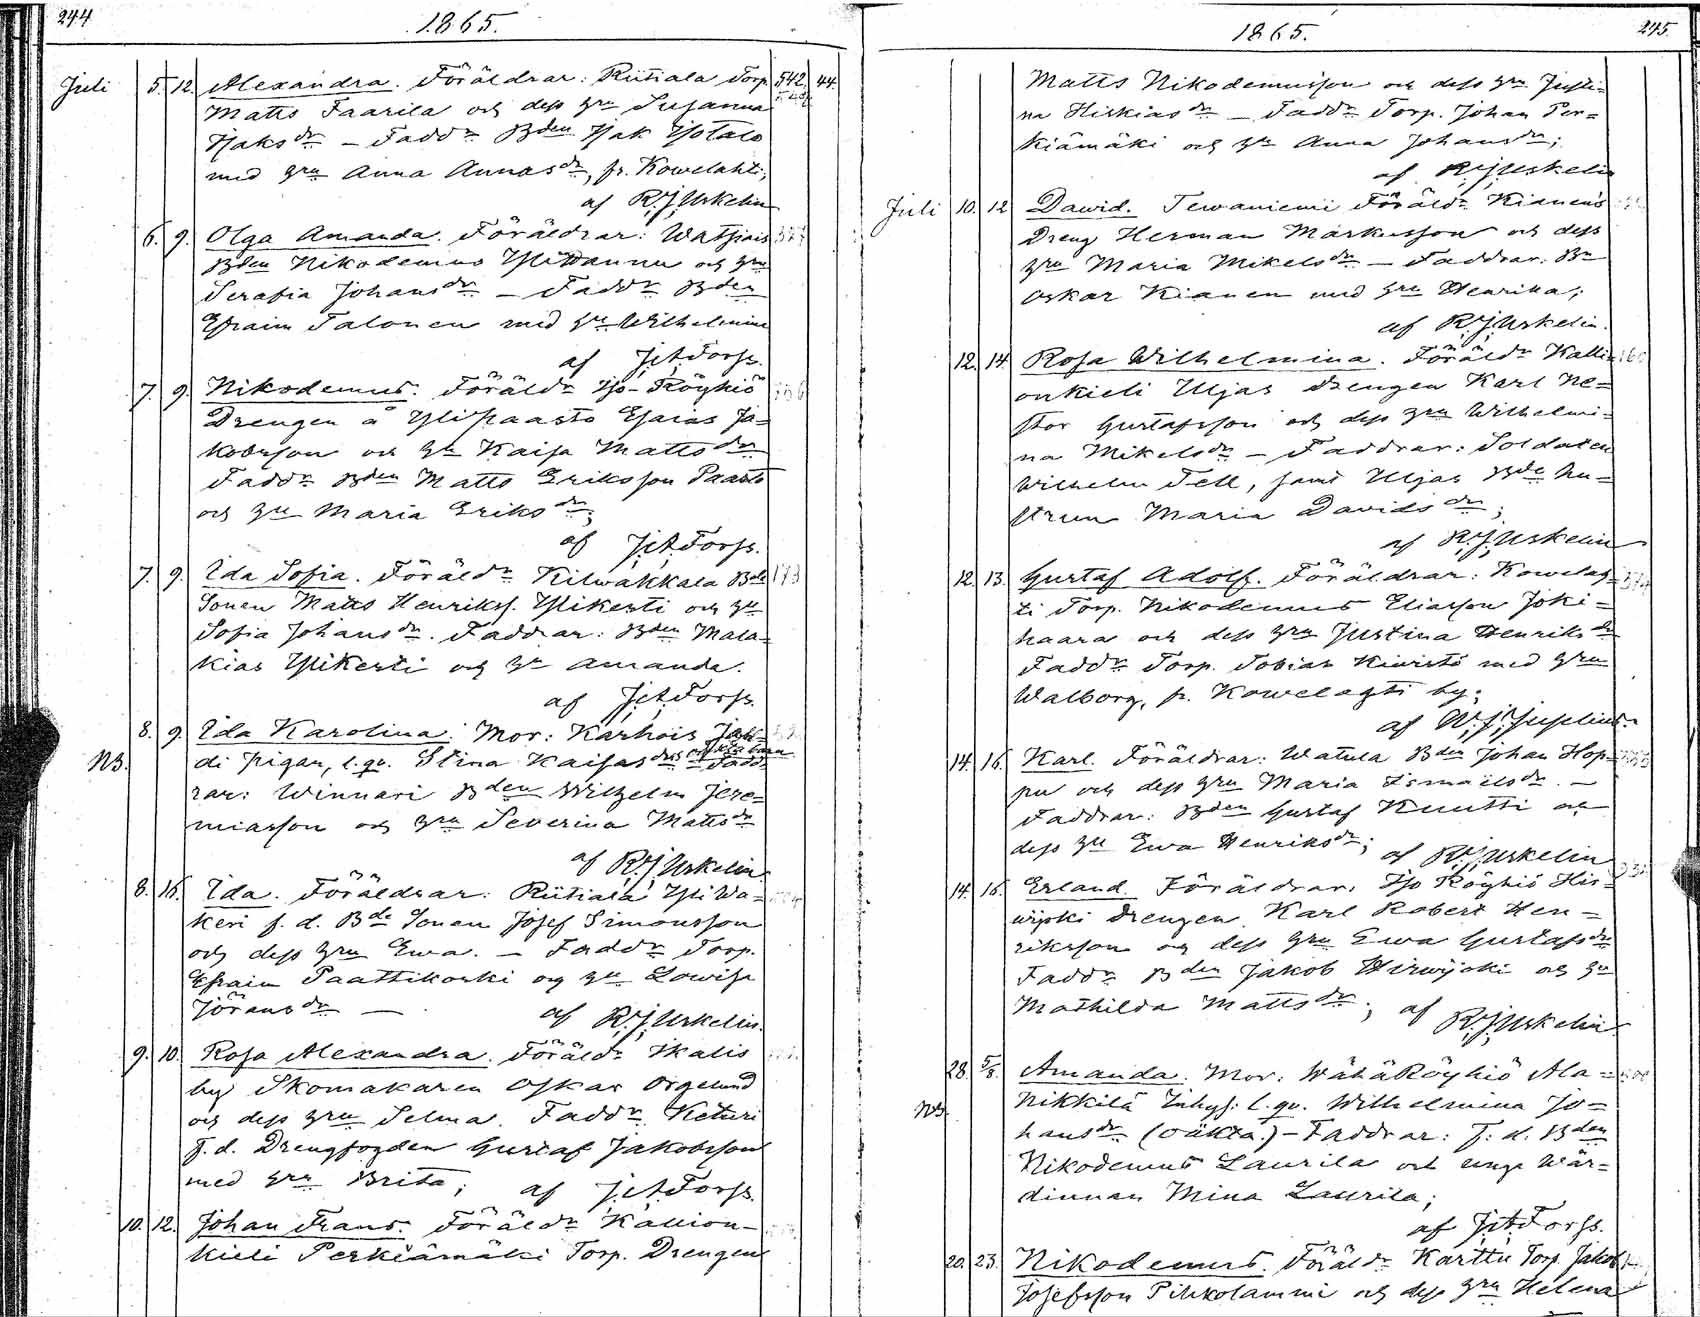 244
1865.
Juli 5. 12. Alexandra. Föräldrar: Riitiala Torp. 542. 44.
Matts Faarila och dess hru Susanna
Isaksdr — Faddr Bden Isak Isotalo
med hru Anna Annasdr, fr. Kowelahti;
af R.J. Urkelin
6. 9. Olga Amanda. Föräldrar: Watsiais
Bden Nikodemus Ylitannu och hru
Serafia Johansdr — Faddr Bden
Efraim Talonen med hu Wilhelmina
af J.A. Forss.
7. 9. Nikodemus. Föräldr Iso-Röyhiö
Drengen å Ylipaasto Esaias Ja-
kobsson och hu Kaisa Mattsdr
Faddr Bden Matts Eriksson Paasto
och hu Maria Eriksdr;
af J.A. Forss.
7. 9. Ida Sofia. Föräldr Kilwakkala Bde 173
Sonen Matts Henrikss. Ylikesti och hu
Sofia Johansdr. Faddrar: Bden Mala-
kias Ylikesti och hr Amanda.
af J.A. Forss.
8. 9. Ida Karolina: Mor: Karhois
NB. di pigan, l. qv. Stina Kaisasdrs oäkta barn Fadd-
rar: Winnari Bden Wilhelm Jere-
miasson och hru Severina Mattsdr
af R.J. Urkelin.
8. 16. Ida. Föräldrar: Riitiala Yli Wa-
keri f. d. Bde Sonen Josef Simonsson
och dess hru Ewa. — Faddr Torp.
Efraim Paattikoski och hu Lowisa
Jöransdr —
af R.J. Urkelin.
9. 10. Rosa Alexandra. Föräldr Ikalis
by Skomakaren Oskar Orgelund
och dess hru Selma. Faddr Keturi
f. d. Drengfogden Gustaf Jakobsson
med hru Brita; af J.A. Forss.
10. 12. Johan Frans. Föräldr Kallion-
kieli Perkiämäki Torp. Drengen
1865.
245.
Matts Nikodemusson och dess hru Justi-
na Hiskiasdr — Faddr Torp. Johan Per-
kiämäki och hr Anna Johansdr;
af R.J. Urkelin
Juli 10. 12 Dawid. Tewaniemi Föräldr Kianens
Dreng Herman Markusson och dess
hru Maria Mikelsdr — Faddrar: Bn
Oskar Kianen med hru Henrika;
af R.J. Urkelin.
12. 14. Rosa Wilhelmina. Föräldr Kalli-
onkieli Uljas drengen Karl Ne-
stor Gustafsson och dess hru Wilhelmi-
na Mikelsdr — Faddrar: Soldaten
Wilhelm Tell, samt Uljas Bde hu-
strun Maria Davidsdr;
af R.J. Urkelin
12. 13. Gustaf Adolf. Föräldrar: Kowelah-
ti Torp. Nikodemus Eliasson Joki-
haara och dess hru Justina Henriksdr
Faddr Torp. Tobias Kiwistö med hru
Walborg, fr. Kowelagti by;
af W.J. Juselius.
14. 16. Karl. Föräldrar: Watula Bden Johan Hop-
pu och dess hru Maria Ismaelsdr. —
Faddrar: Bden Gustaf Knutti och
dess hu Ewa Henriksdr;
af R.J. Urkelin
14. 16. Erland. Föräldrar: Iso Röyhiö Hir-
wijoki drengen Karl Robert Hen-
riksson och dess hru Ewa Gustafsdr
Faddr Bden Jakob Hirwijoki och hu
Mathilda Mattsdr; af
R.J. Urkelin.
28. 5/8. Amanda. Mor: Wähä Röyhiö Ala-
NB. Nikkilä Inhys: l. qv. Wilhelmina Jo-
hansdr (oäkta.) — Faddrar: f. d. Bden
Nikodemus Laurila och unga Wär-
dinnan Mina Laurila;
af J.A. Forss.
20. 23. Nikodemus. Föräldr Karttu Torp. Jakob
Josefsson Pihkolammi och dess hru Helena